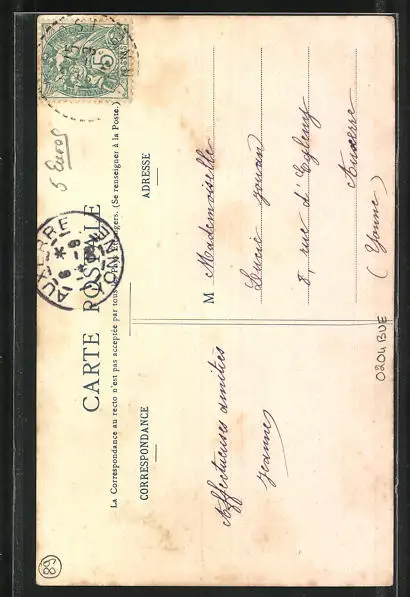 CARTE POSTALE
La Correspondance au recto n'est pas acceptée par tous les Pays Etrangers. (Se renseigner à la Poste.)
CORRESPONDANCE
ADRESSE
Affectueuses amitiés
Jeanne
M Mademoiselle
Lucie
8, rue d'Egleny
Auxerre
(Yonne)
5 Euros
AUXERRE
YONNE
5
0204BUE
89